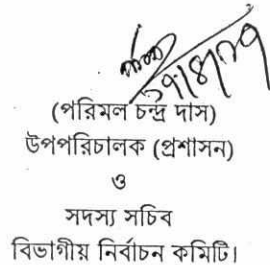 (পরিমল চন্দ্র দাস)
উপপরিচালক (প্রশাসন)
ও
সদস্য সচিব
বিভাগীয় নির্বাচন কমিটি।